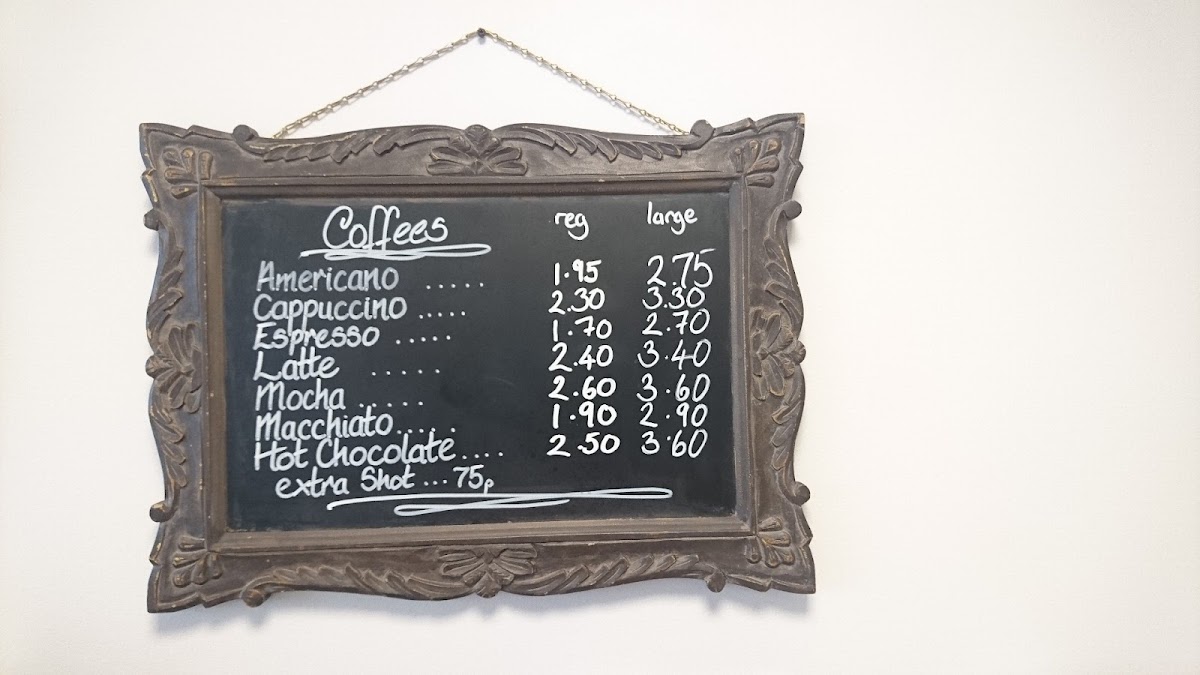 Coffees reg large
Americano ..... 1.95 2.75
Cappuccino ..... 2.30 3.30
Espresso ..... 1.70 2.70
Latte ..... 2.40 3.40
Mocha ..... 2.60 3.60
Macchiato..... 1.90 2.90
Hot Chocolate.... 2.50 3.60
extra Shot ... 75p